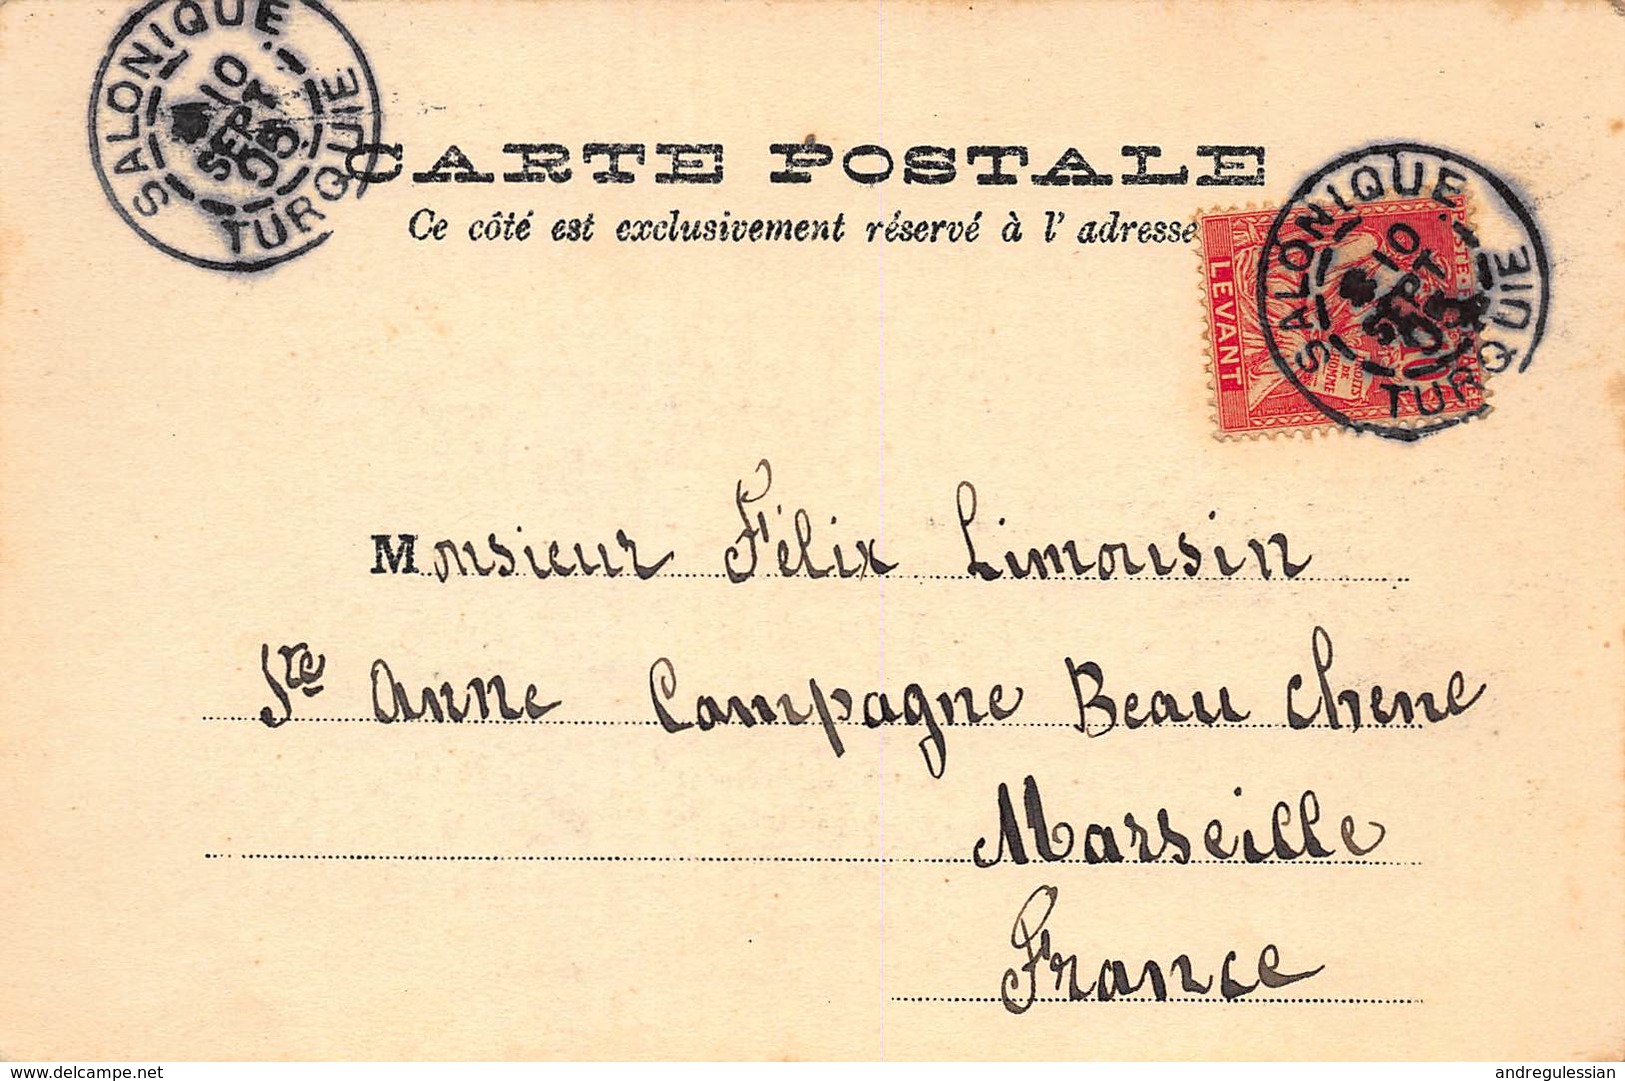 SALONIQUE
10
SEPT
05
TURQUIE
CARTE POSTALE
Ce côté est exclusivement réservé à l' adresse
SALONIQUE
10
SEPT
05
TURQUIE
LEVANT
DROITS
DE
L'HOMME
10
Monsieur Félix Limousin
Ste Anne Campagne Beau Chene
Marseille
France
www.delcampe.net
andregulessian